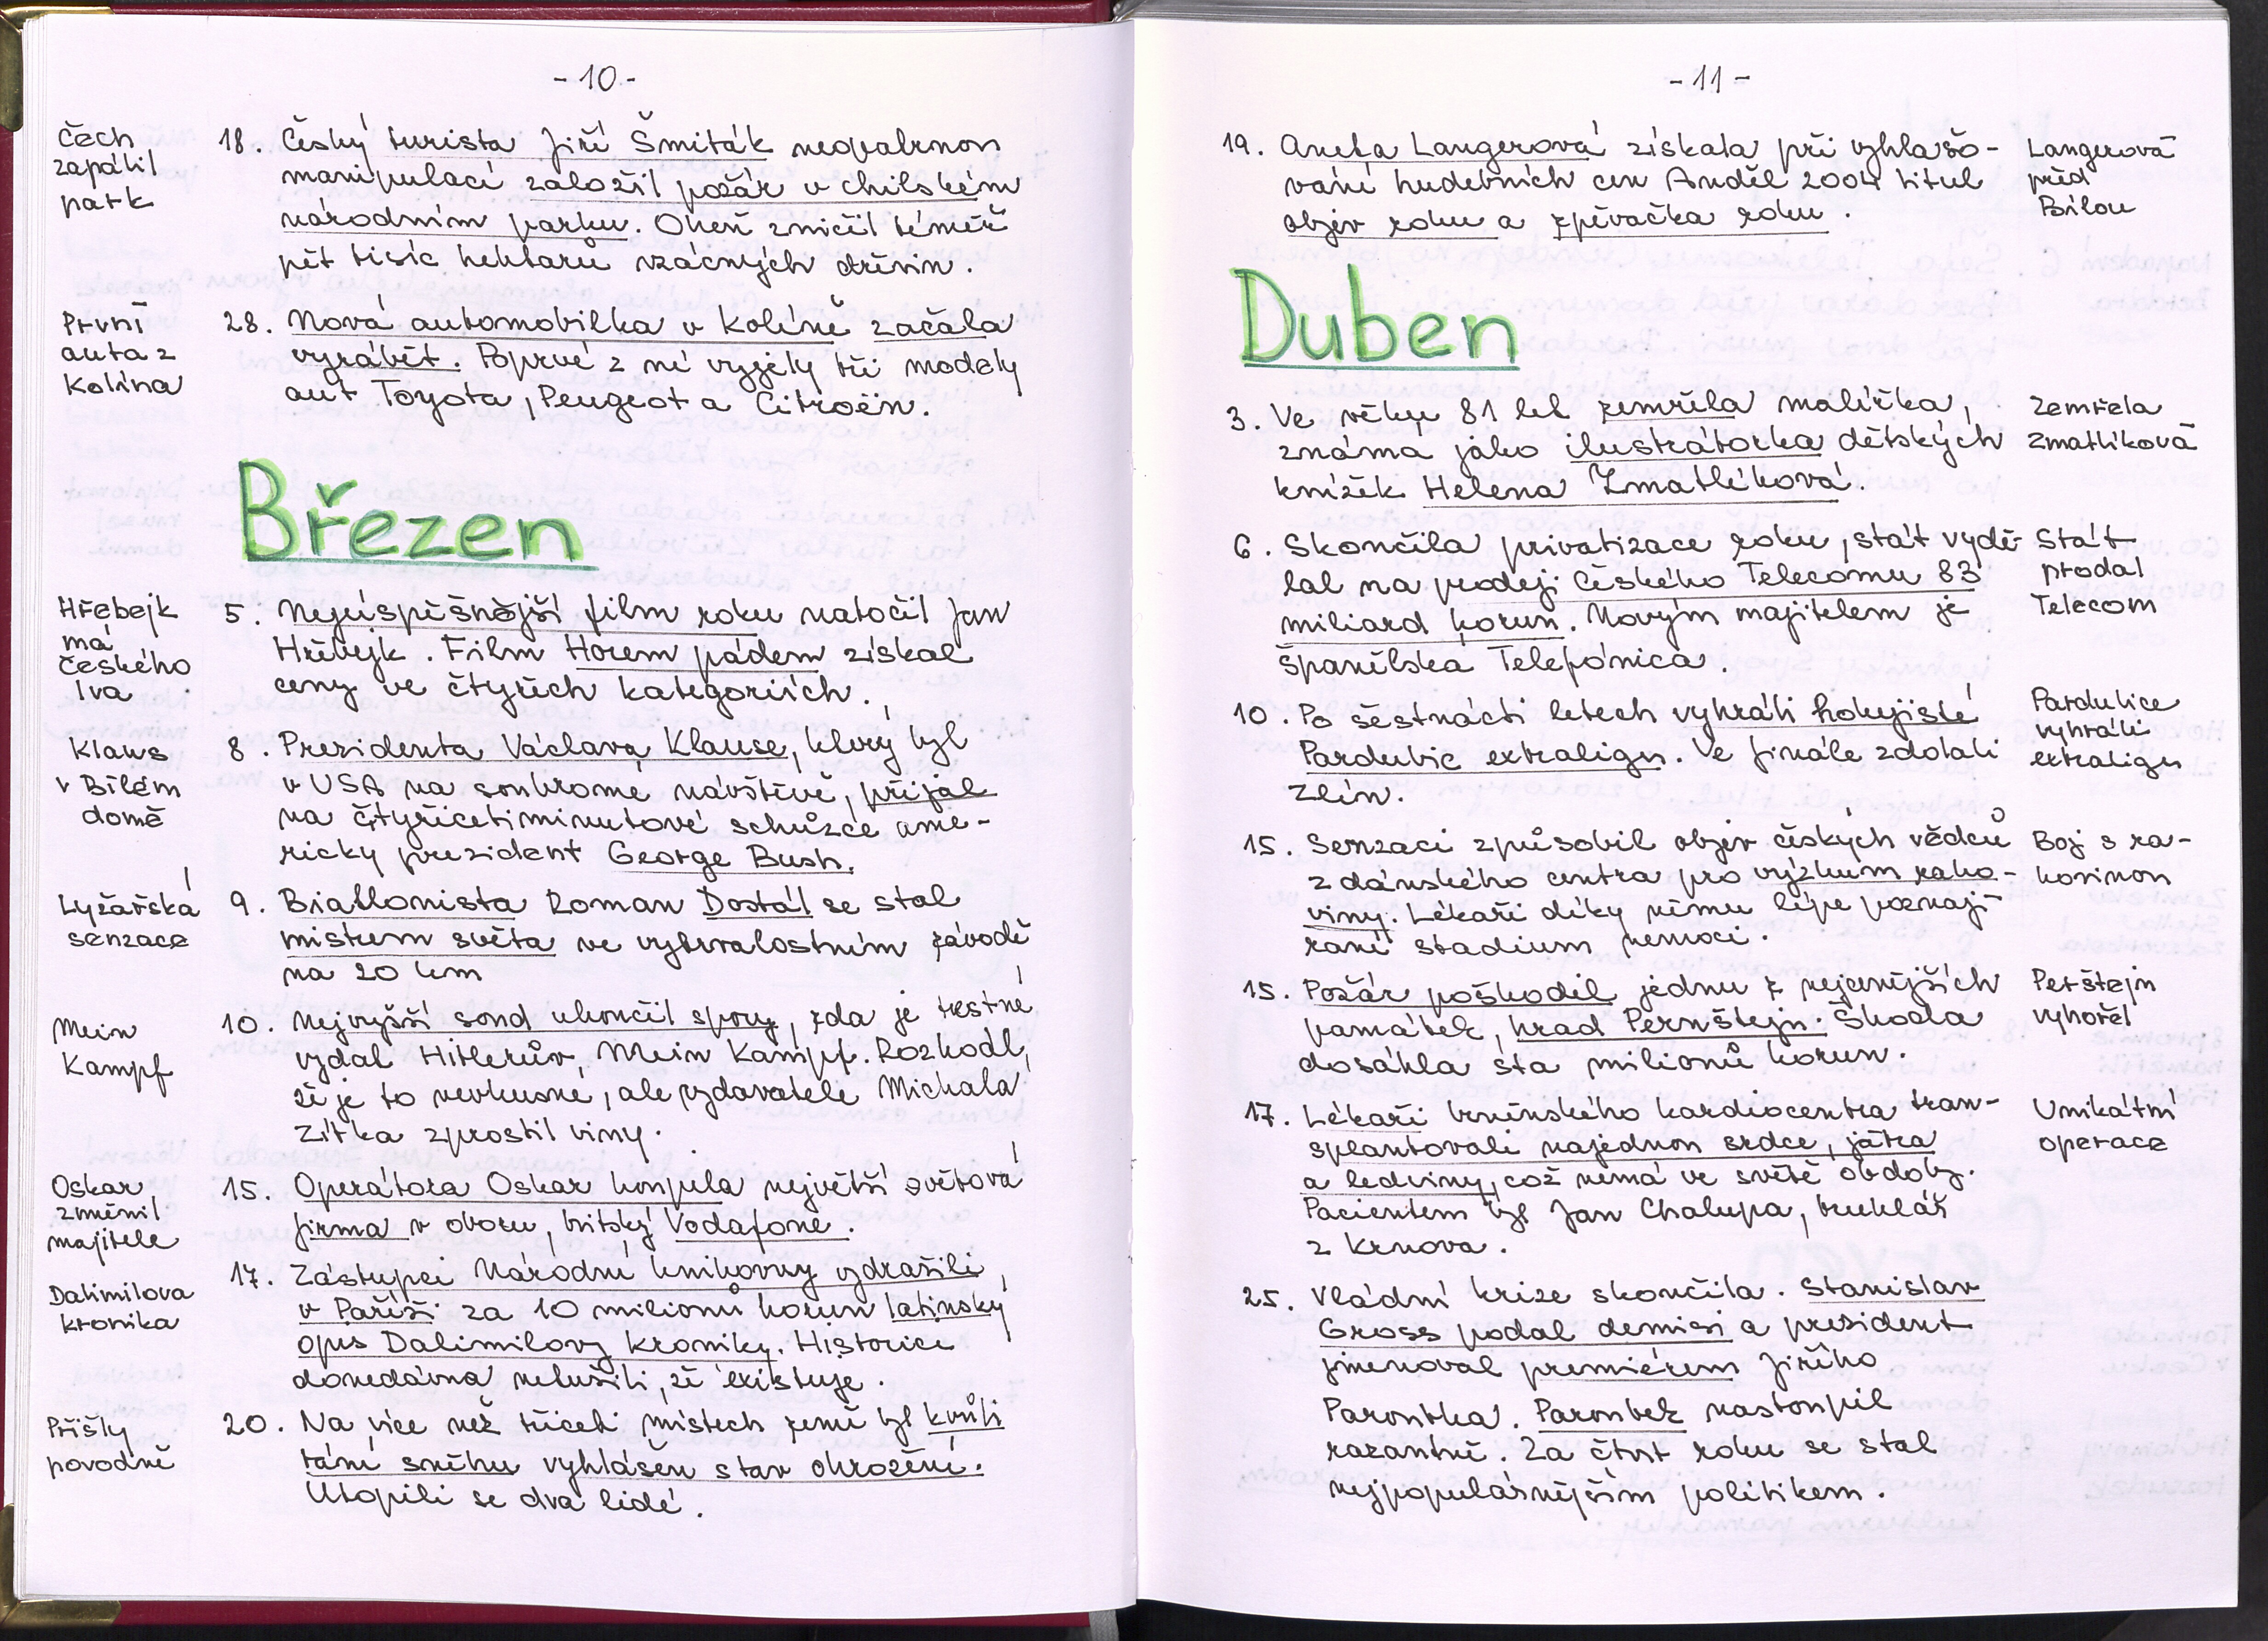 - 10 -
Čech
zapálil
park
18. Český turista Jiří Šmiták neopatrnou
manipulací založil požár v chilském
národním parku. Oheň zničil téměř
pět tisíc hektarů vzácných dřevin.
První
auta z
Kolína
28. Nová automobilka v Kolíně začala
vyrábět. Poprvé z ní vyjely tři modely
aut Toyota, Peugeot a Citroën.
Březen
Hřebejk
má
českého
lva
5. Nejúspěšnější film roku natočil Jan
Hřebejk. Film Horem pádem získal
ceny ve čtyřech kategoriích.
Klaus
v Bílém
domě
8. Prezidenta Václava Klause, který byl
v USA na soukromé návštěvě, přijal
na čtyřicetiminutové schůzce ame-
rický prezident George Bush.
Lyžařská
senzace
9. Biatlonista Roman Dostál se stal
mistrem světa ve vytrvalostním závodě
na 20 km
Mein
Kampf
10. Nejvyšší soud ukončil spory, zda je trestné
vydal Hitlerův, Mein Kampf. Rozhodl,
že je to nevkusné, ale vydavatele Michala
Zítka zprostil viny.
Oskar
změnil
majitele
15. Operátora Oskar koupila největší světová
firma v oboru, britský Vodafone.
Dalimilova
kronika
17. Zástupci Národní knihovny vydražili
v Paříži za 10 milionů korun latinský
opis Dalimilovy kroniky. Historici
donedávna netušili, že existuje.
Přišly
povodně
20. Na více než třiceti místech země byl kvůli
tání sněhu vyhlášen stav ohrožení.
Utopili se dva lidé.
- 11 -
19. Aneta Langerová získala při vyhlašo-
vání hudebních cen Anděl 2004 titul
objev roku a zpěvačka roku.
Langerová
před
Bílou
Duben
3. Ve věku 81 let zemřela malířka,
známá jako ilustrátorka dětských
knížek Helena Zmatlíková.
Zemřela
Zmatlíková
6. Skončila privatizace roku, stát vydě
lal na prodeji Českého Telecomu 83
miliard korun. Novým majitelem je
španělská Telefónica.
Stát
prodal
Telecom
10. Po šestnácti letech vyhráli hokejisté
Pardubic extraligu. Ve finále zdolali
Zlín.
Pardubice
vyhráli
extraligu
15. Senzaci způsobil objev českých vědců
z dánského centra pro výzkum rako-
viny. Lékaři díky němu lépe poznají
rané stadium nemoci.
Boj s ra-
kovinou
15. Požár poškodil jednu z nejcennějších
památek, hrad Pernštejn. Škoda
dosáhla sta milionů korun.
Perštejn
vyhořel
17. Lékaři brněnského kardiocentra tran-
splantovali najednou srdce, játra
a ledviny, což nemá ve světě obdoby.
Pacientem byl Jan Chalupa, truhlář
z Krnova.
Unikátní
operace
25. Vládní krize skončila. Stanislav
Gross podal demisi a president
jmenoval premiérem Jiřího
Paroubka. Paroubek nastoupil
razantně. Za čtvrt roku se stal
nejpopulárnějším politikem.